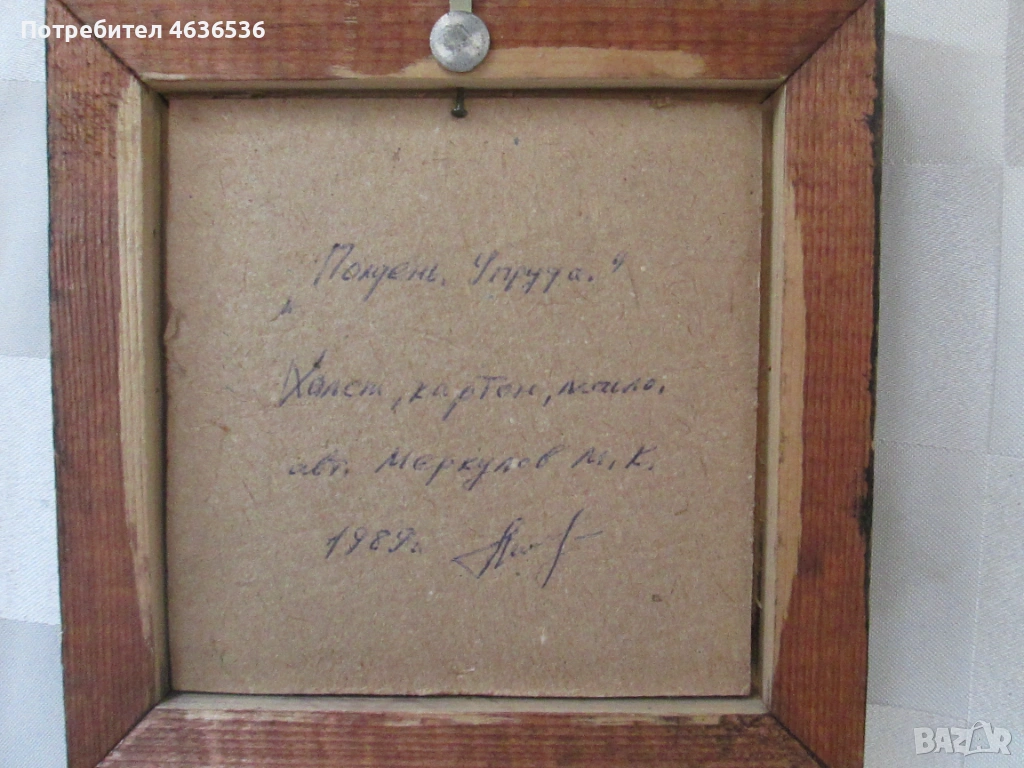 Потребител 4636536
"Полдень. У пруда."
Холст, картон, масло.
авт. Меркулов М.К.
1989г.
BAZAR